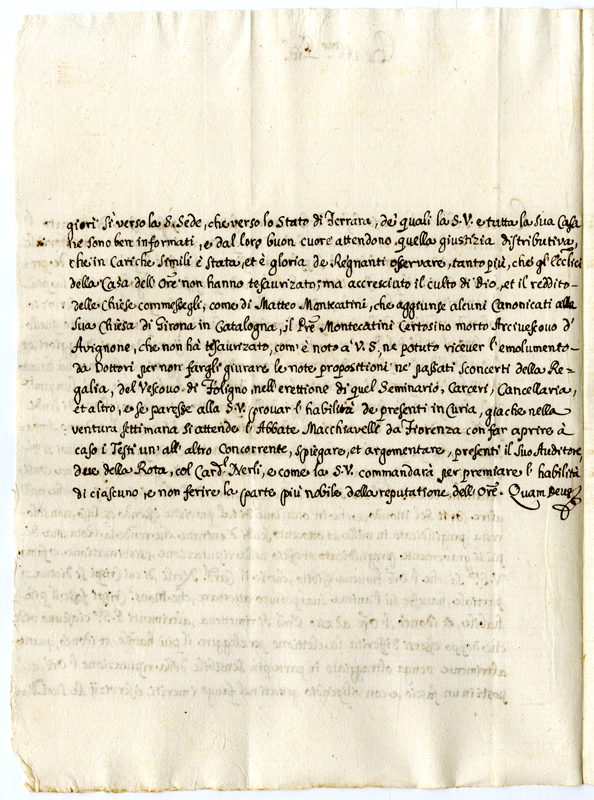 giori sì verso la S. Sede, che verso lo Stato di Ferrara, de quali la S.V. e tutta la sua Casa
ne sono ben informati, e dal loro buon cuore attendono quella giustizia distributiva,
che in Cariche simili è stata, et è gloria de Regnanti osservare, tanto più, che gl'Ecclici
della Casa dell'Ore non hanno tesaurizato; ma accresciato il culto di Dio, et il reddito
delle Chiese commessegli, come di Matteo Montecatini, che aggiunse alcuni Canonicati alla
Sua Chiesa di Girona in Catalogna, il Pre Montecatini Certosino morto Arcivescovo d'
Avignone, che non ha tesaurizato, com'è noto a V.S, ne potuto ricever l'emolumento
da Dottori per non fargli giurare le note propositioni ne passati sconcerti della Re=
galia, del Vescovo di Foligno, nell'erettione di quel Seminario, Carceri, Cancellaria,
et altro, e se paresse alla S.V. provar l'habilità de presenti in Curia, giache nella
ventura settimana si attende l'Abbate Macchiavelli da Fiorenza con far aprire à
caso i Testi un' all'altro Concorrente, spiegare, et argomentare, presenti il Suo Auditore,
due della Rota, col Card. Nerli, e come la S.V. commandarà per premiare l'habilità
di ciascuno, e non ferire la parte più nobile della reputatione dell'Ore. Quam Deus